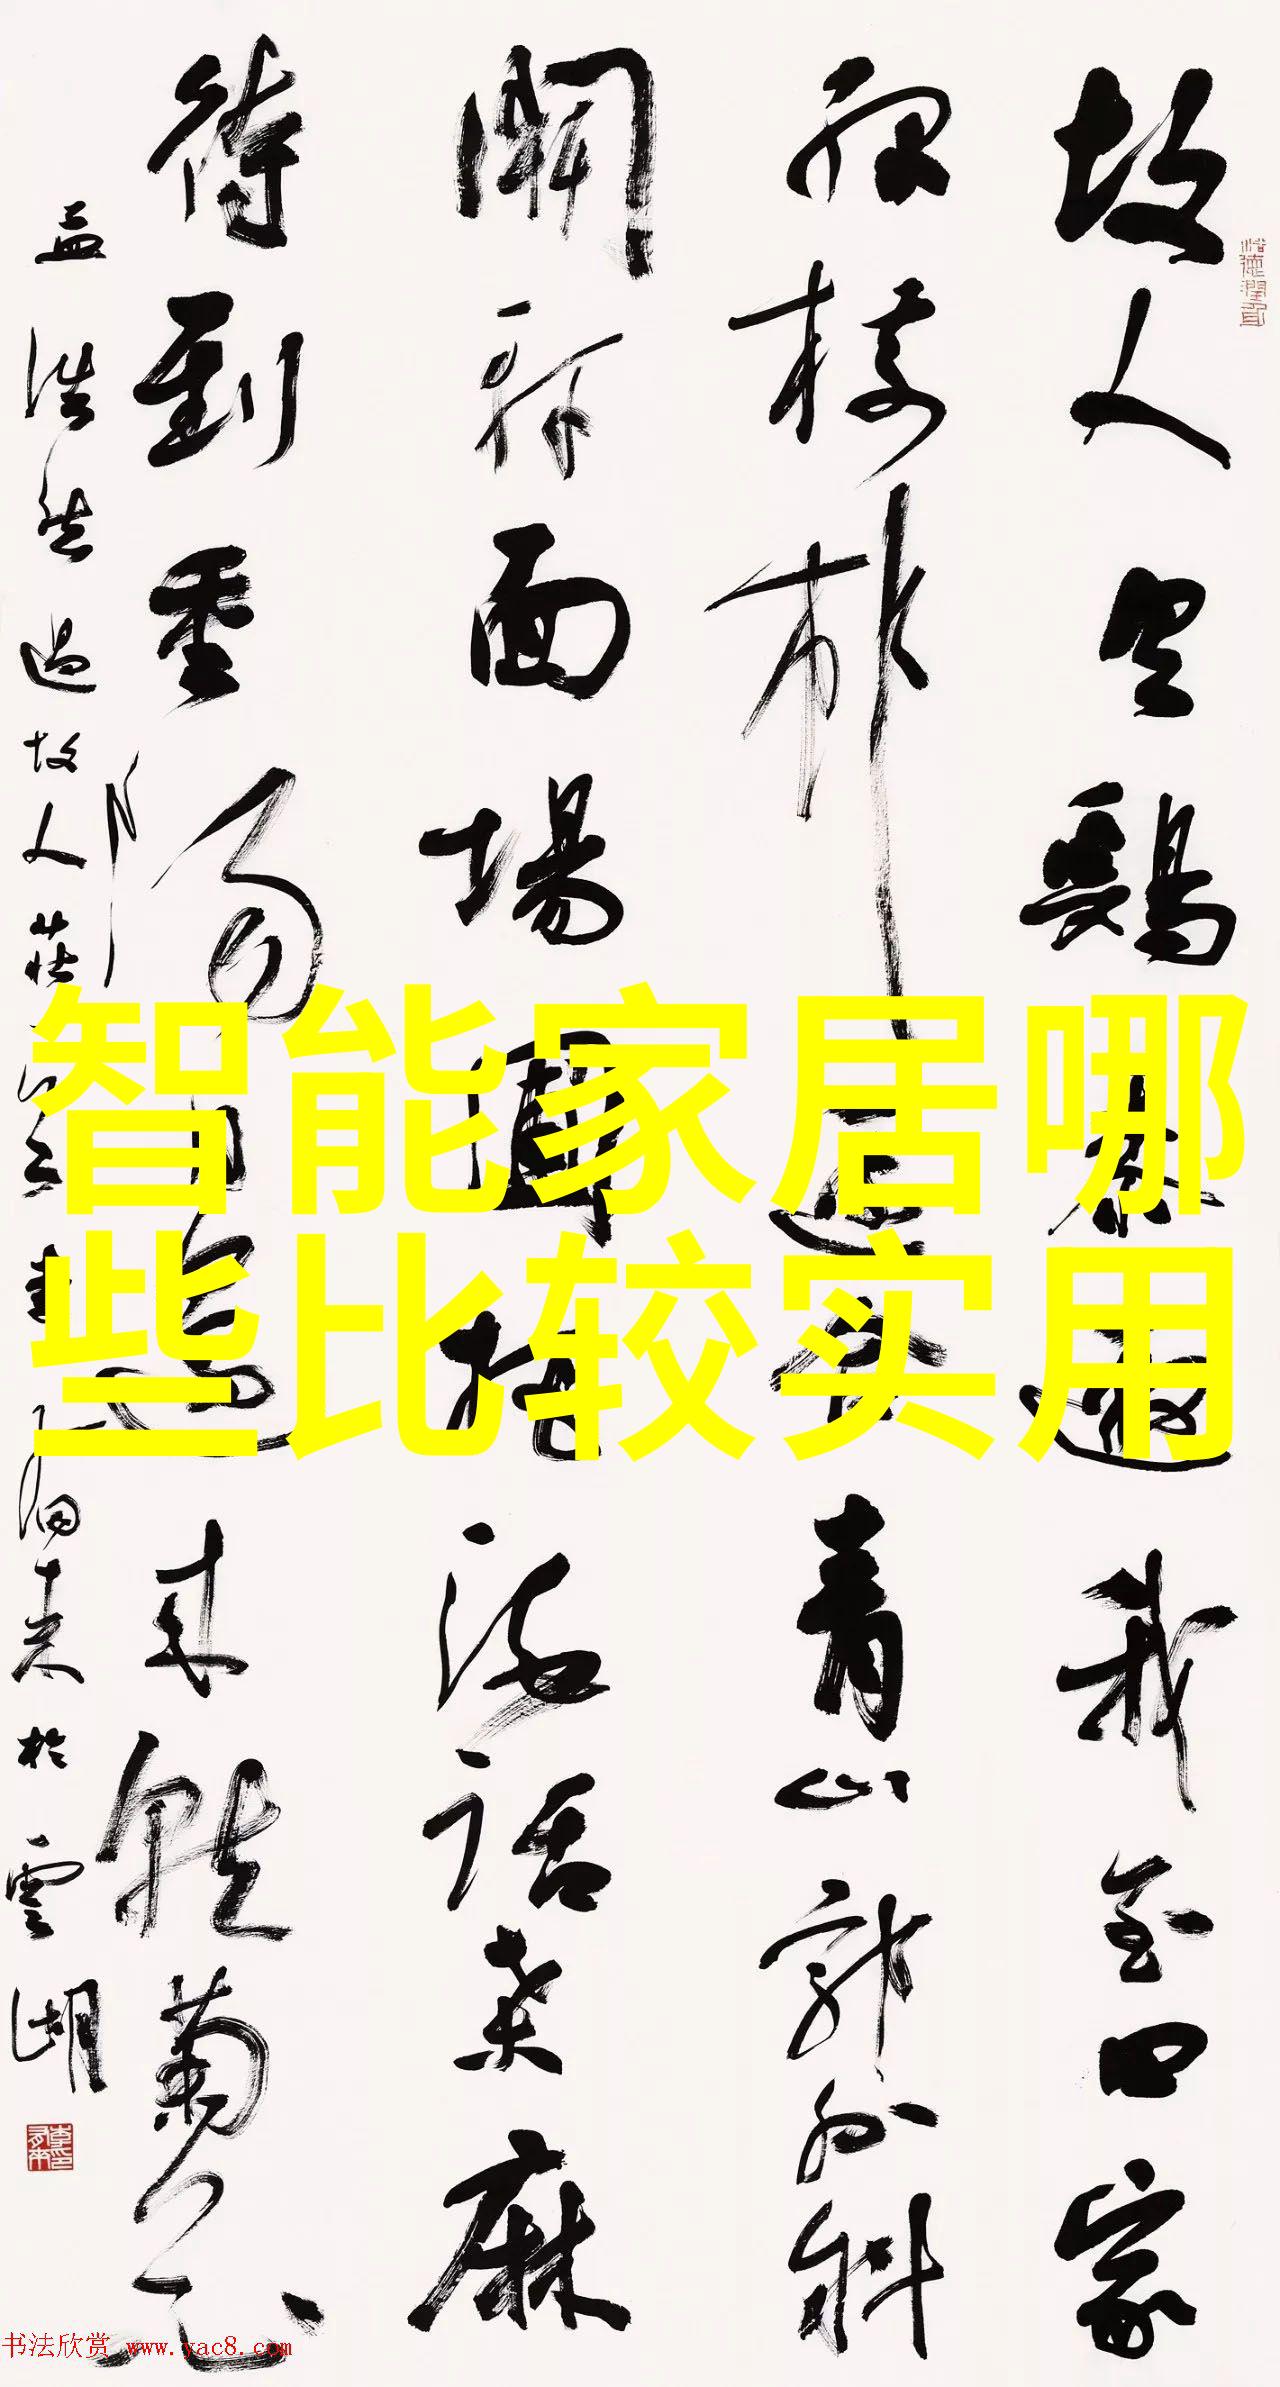 故人具鷄黍邀我至田家
绿樹村邊合青山郭外斜
開軒面場圃把酒話桑麻
待到重陽日還来就菊花
孟浩然過故人莊
来於雲湖
智能家居哪
些比较实用
书法欣赏 www.yac8.com